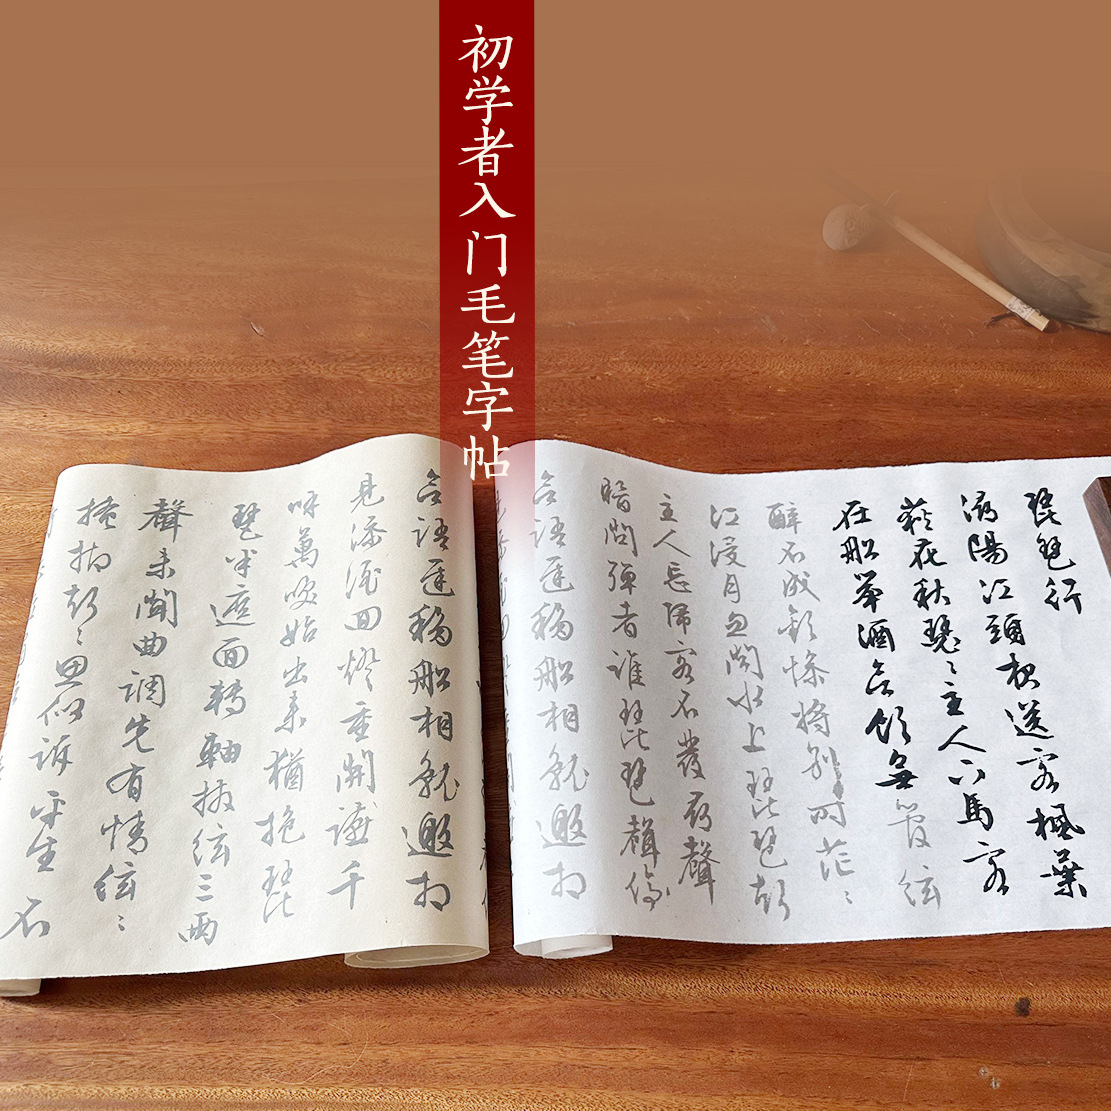 初学者入门毛笔字帖
琵琶行
潯陽江頭夜送客楓葉
荻花秋瑟々主人下馬客
在船舉酒欲飲無管絃
醉不成歡慘將別時茫々
江浸月忽聞水上琵琶聲
主人忘歸客不發尋聲
暗問彈者誰琵琶聲停
欲語遲移船相就邀相
欲語遲移船相就邀相
見添酒回燈重開讌千
呼萬喚始出來猶抱琵
琶半遮面轉軸撥絃三兩
聲未聞曲調先有情絃々
掩抑聲々思似訴平生不